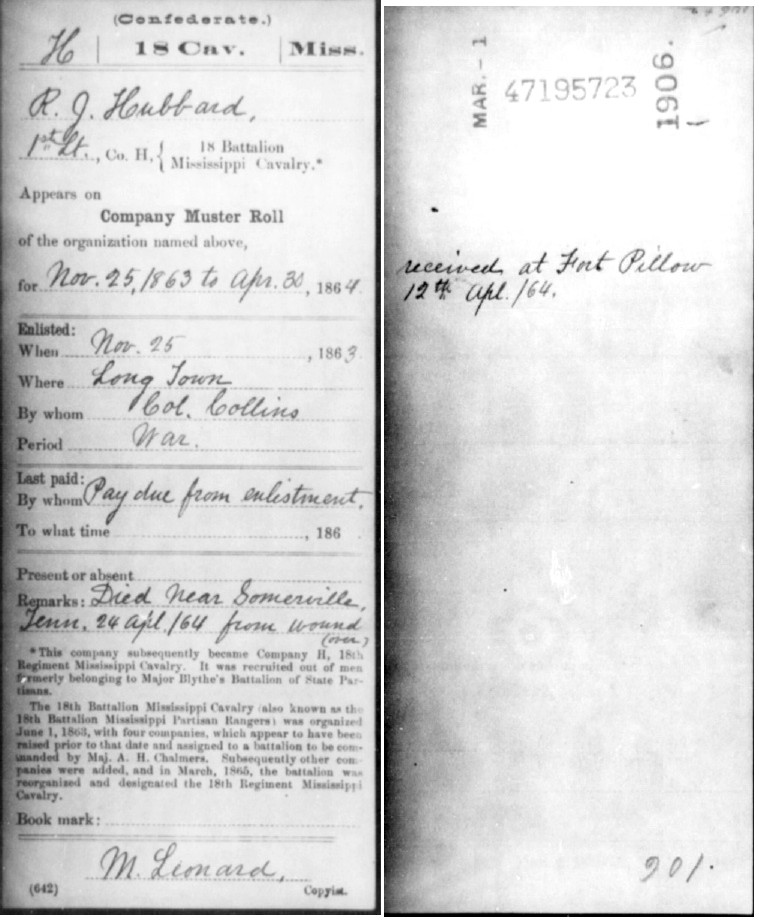 (Confederate.)
H | 18 Cav. | Miss.
R. J. Hubbard,
1st Lt., Co. H, { 18 Battalion
Mississippi Cavalry.*
Appears on
Company Muster Roll
of the organization named above,
for Nov. 25, 1863 to Apr. 30, 1864.
Enlisted:
When Nov. 25, 1863.
Where Long Town
By whom Col. Collins
Period War.
Last paid:
By whom Pay due from enlistment.
To what time , 186 .
Present or absent
Remarks: Died near Somerville,
Tenn. 24 Apl. /64 from wound
(over)
*This company subsequently became Company H, 18th
Regiment Mississippi Cavalry. It was recruited out of men
formerly belonging to Major Blythe's Battalion of State Par-
tisans.
The 18th Battalion Mississippi Cavalry (also known as the
18th Battalion Mississippi Partisan Rangers) was organized
June 1, 1863, with four companies, which appear to have been
raised prior to that date and assigned to a battalion to be com-
manded by Maj. A. H. Chalmers. Subsequently other com-
panies were added, and in March, 1865, the battalion was
reorganized and designated the 18th Regiment Mississippi
Cavalry.
Book mark:
M. Leonard,
(642) Copyist.
MAR. - 1 47195723 1906.
received at Fort Pillow
12th Apl. /64.
901.